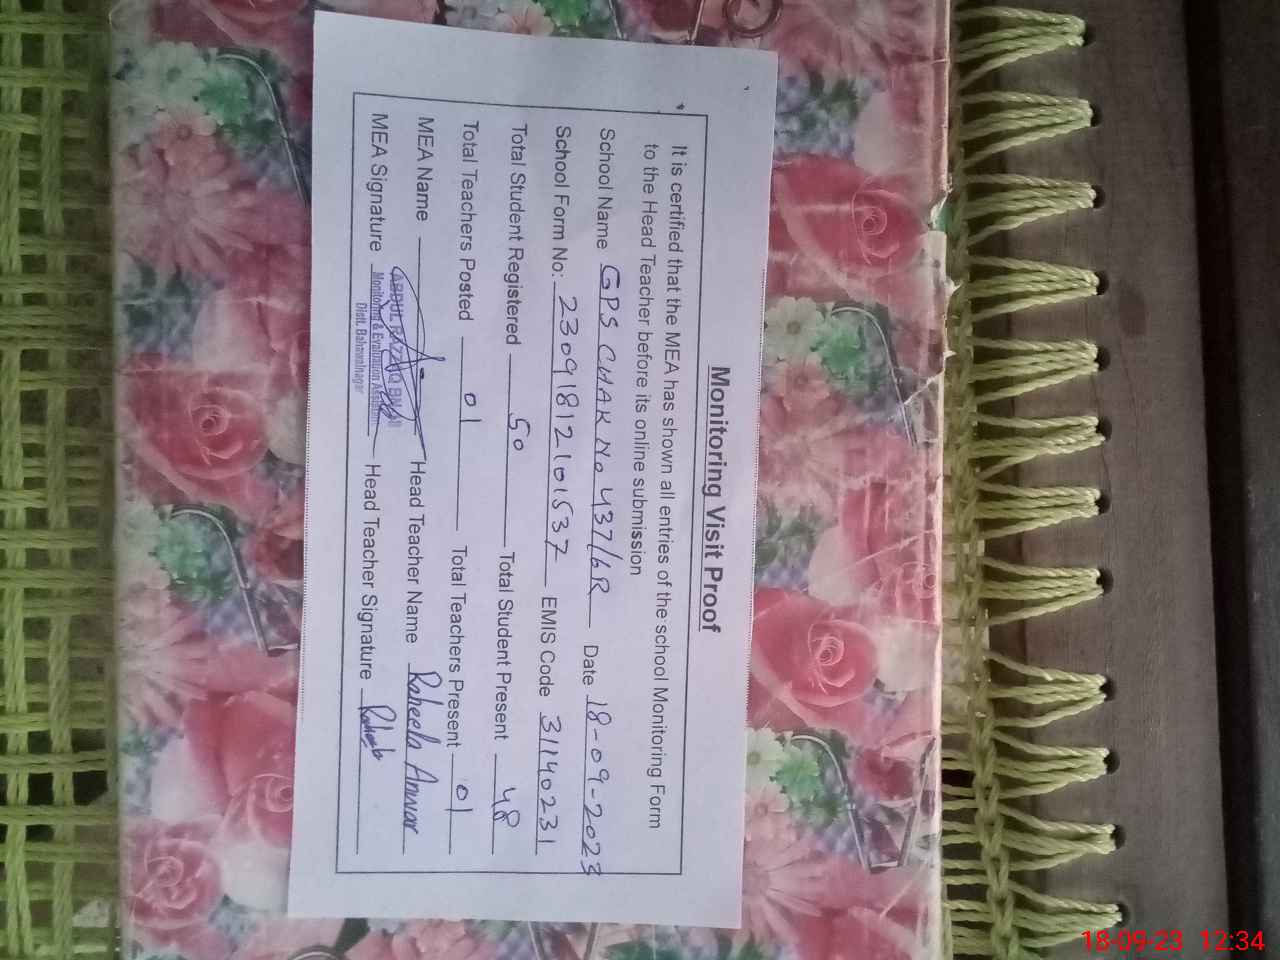 Monitoring Visit Proof
It is certified that the MEA has shown all entries of the school Monitoring Form
to the Head Teacher before its online submission
School Name GPS CHAK No 437/6R Date 18-09-2023
School Form No: 23091812101537 EMIS Code 31140231
Total Student Registered 50 Total Student Present 48
Total Teachers Posted 01 Total Teachers Present 01
MEA Name Head Teacher Name Raheela Anwar
MEA Signature Head Teacher Signature Raheela
ABDUL RAZZAQ
Monitoring & Evaluation Assistant
Distt. Bahawalnagar
18-09-23 12:34